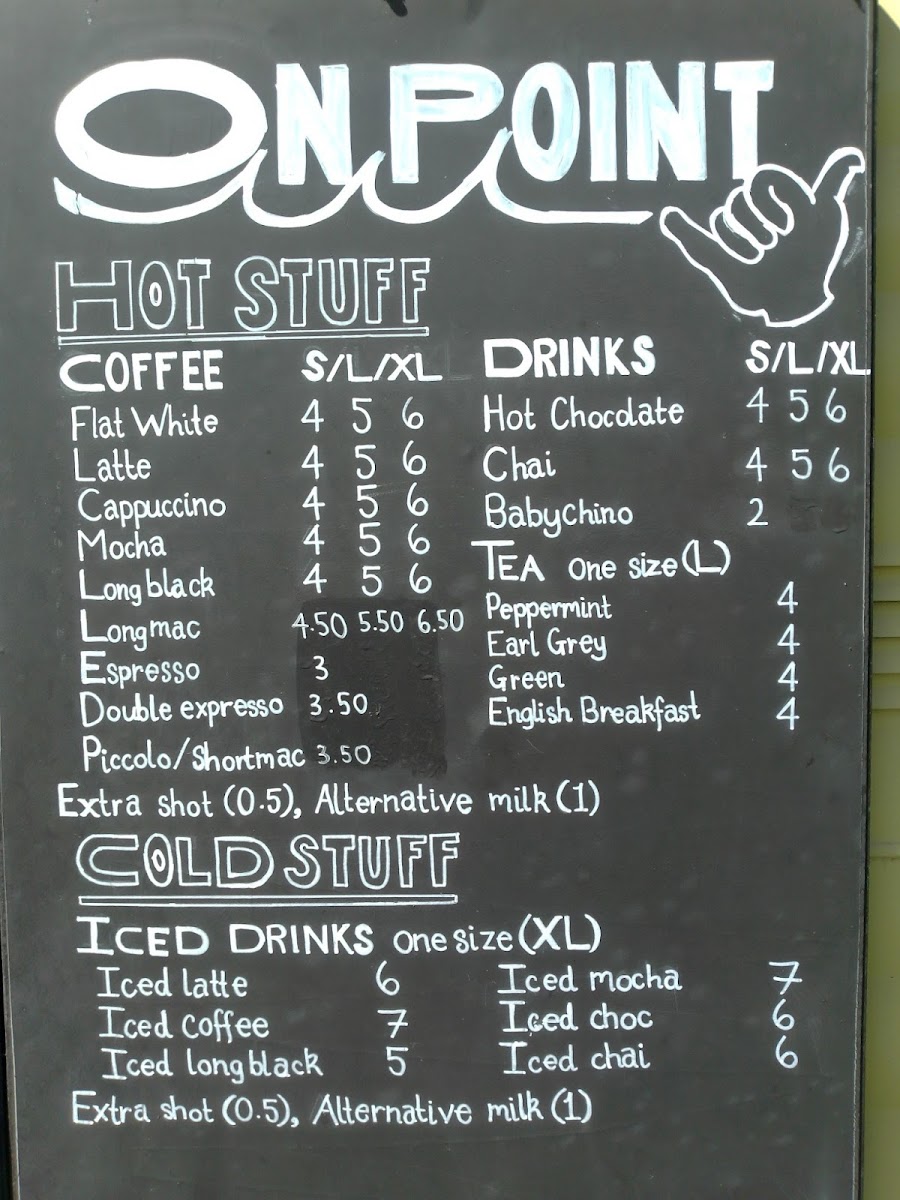 ON POINT
HOT STUFF
COFFEE S/L/XL
Flat White 4 5 6
Latte 4 5 6
Cappuccino 4 5 6
Mocha 4 5 6
Longblack 4 5 6
Longmac 4.50 5.50 6.50
Espresso 3
Double expresso 3.50
Piccolo/Shortmac 3.50
DRINKS S/L/XL
Hot Chocolate 4 5 6
Chai 4 5 6
Babychino 2
TEA one size (L)
Peppermint 4
Earl Grey 4
Green 4
English Breakfast 4
Extra shot (0.5), Alternative milk (1)
COLD STUFF
ICED DRINKS one size (XL)
Iced latte 6
Iced coffee 7
Iced longblack 5
Iced mocha 7
Iced choc 6
Iced chai 6
Extra shot (0.5), Alternative milk (1)